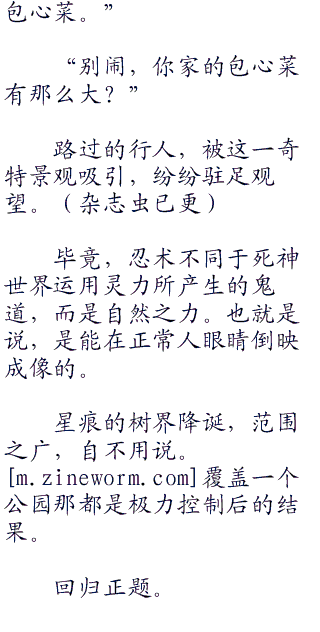 包心菜。”
“别闹，你家的包心菜
有那么大？”
路过的行人，被这一奇
特景观吸引，纷纷驻足观
望。（杂志虫已更）
毕竟，忍术不同于死神
世界运用灵力所产生的鬼
道，而是自然之力。也就是
说，是能在正常人眼睛倒映
成像的。
星痕的树界降诞，范围
之广，自不用说。
[m.zineworm.com]覆盖一个
公园那都是极力控制后的结
果。
回归正题。